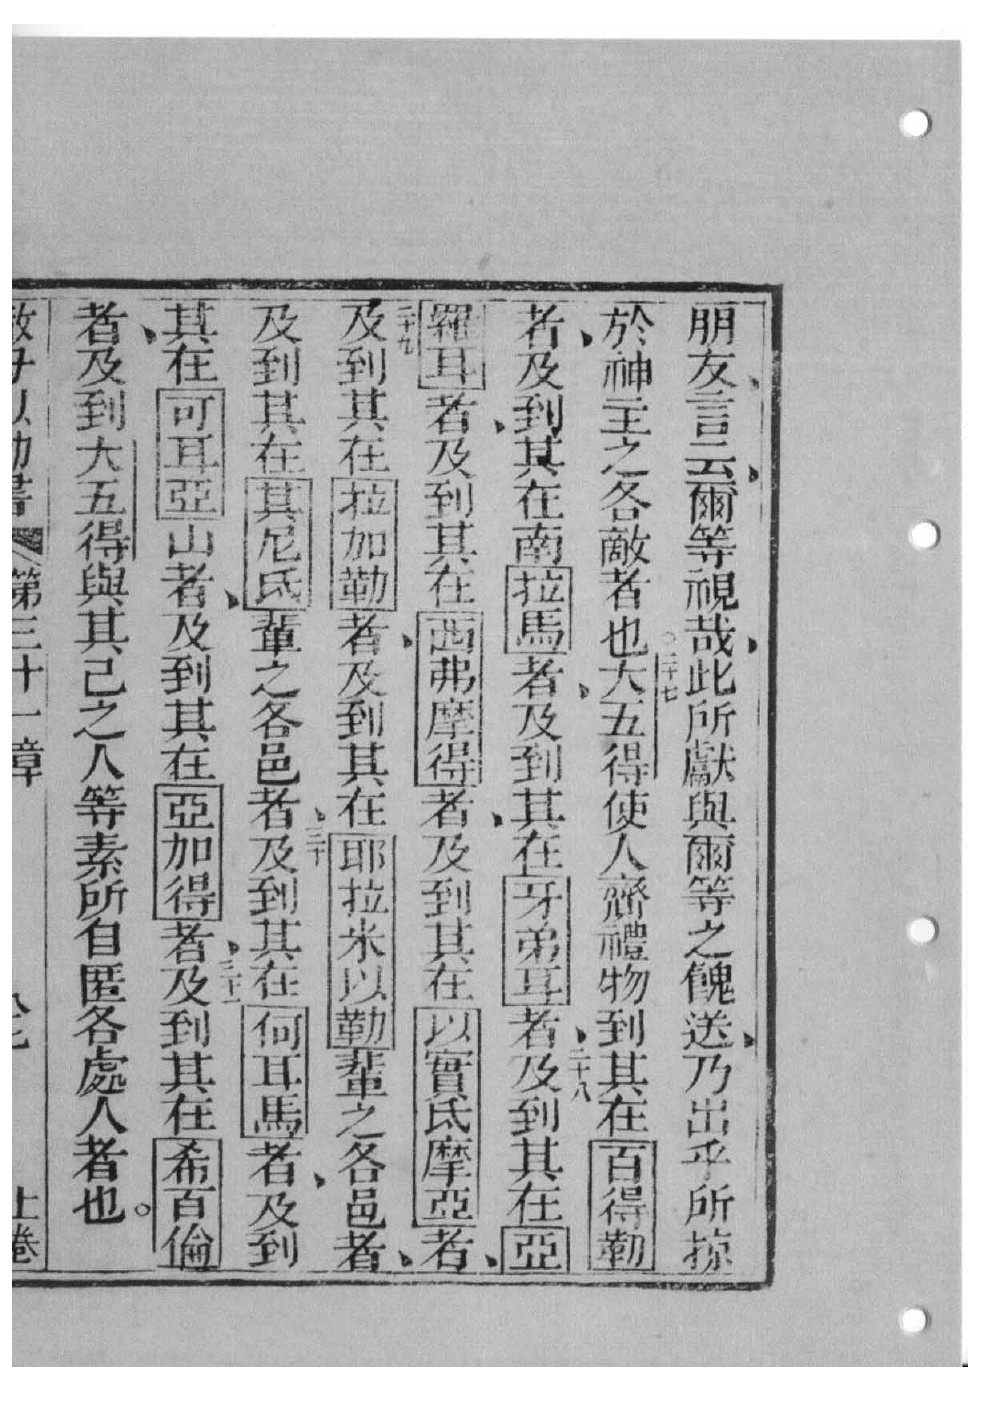 朋友、言云、爾等視哉、此所獻與爾等之餽送、乃出乎所掠
於神主之各敵者也。二十七大五得使人齎禮物到其在百得勒
者、及到其在南拉馬者、及到其在牙弟耳者、二十八及到其在亞
羅耳者、及到其在西弗摩得者、及到其在以實氐摩亞者、
二十九及到其在拉加勒者、及到其在耶拉米以勒輩之各邑者、
及到其在其尼氐輩之各邑者、三十及到其在何耳馬者、及到
其在可耳亞山者、及到其在亞加得者、三十一及到其在希百倫
者、及到大五得與其己之人等素所自匿各處人者也。
撒母以勒書 第三十一章 上卷